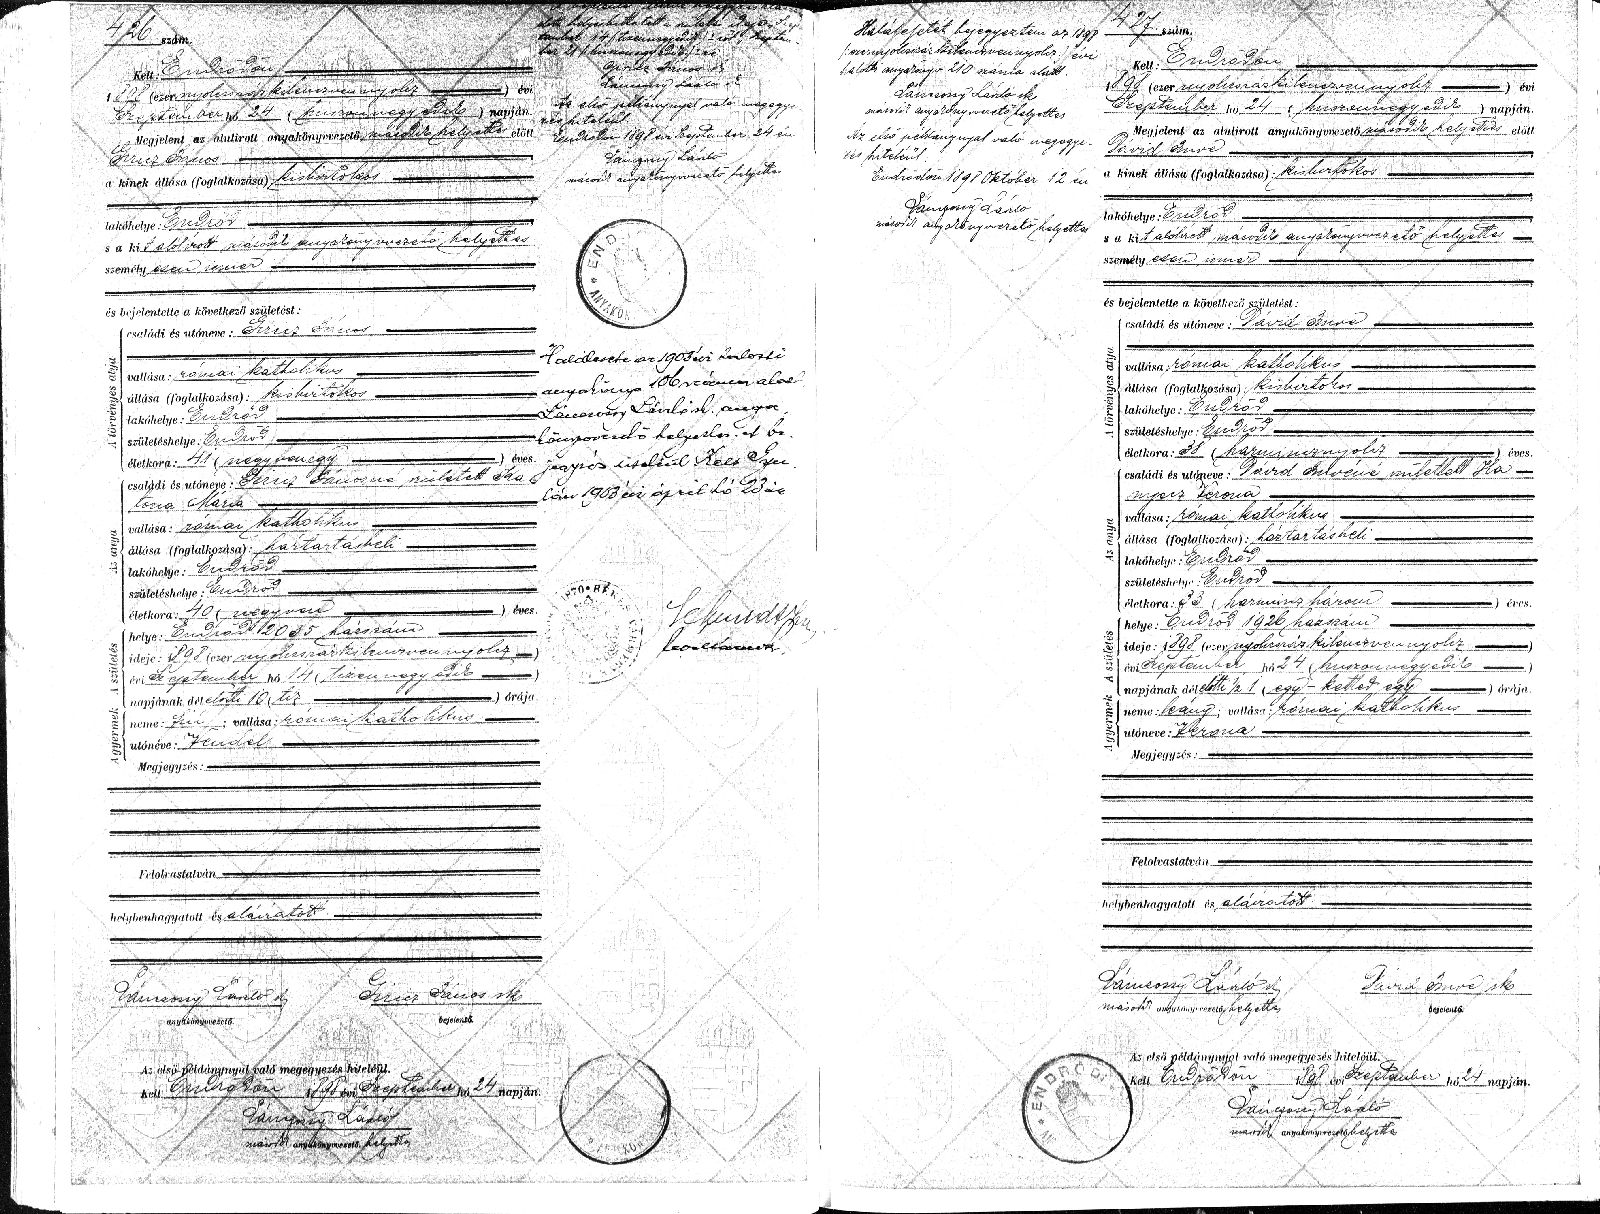 426 szám.
Kelt: Endrődön
1898 (ezer nyolcszázkilencvennyolcz) évi
Szeptember hó 24 (huszonnegyedik) napján.
Megjelent az alulirott anyakönyvvezető másodk helyettes előtt
Giricz János
a kinek állása (foglalkozása): kisbirtokos
lakóhelye: Endrőd
s a kit alólirott másodk anyakönyvvezető helyettes
személy esen ismer
és bejelentette a következő születést:
A törvényes atyai
családi és utóneve: Giricz János
vallása: római katholikus
állása (foglalkozása): kisbirtokos
lakóhelye: Endrőd
születéshelye: Endrőd
életkora: 41 (negyvenegy) éves.
Az anya
családi és utóneve: Giricz Jánosné született Ka
tona Mária
vallása: római katholikus
állása (foglalkozása): háztartásbeli
lakóhelye: Endrőd
születéshelye: Endrőd
életkora: 40 (negyven) éves.
A születés
helye: Endrőd 1205 házszám
ideje: 1898 (ezer nyolcszázkilenczvennyolcz)
évi Szeptember hó 14 (tizennegyedik)
napjának délelőtti 10 tiz órája.
A gyermek
neme: fiú; vallása: római katholikus
utóneve: Vendel
Megjegyzés:
Felolvastatván
helybenhagyatott és aláiratott
Lánczosy László sk Giricz János sk
anyakönyvvezető. bejelentő.
Az első példánynyal való megegyezés hiteléül.
Kelt Endrődön 1898 évi Szeptember hó 24 napján.
Lánczosy László
másodk anyakönyvvezető helyettes
Giricz János sk
Lánczosy László sk
Az első példánynyal való megegye-
zés hiteléül.
Endrődön 1898 évi Szeptember 24 én
Lánczosy László
másodk anyakönyvvezető helyettes
ENDRŐD
ANYAKÖN
Halálesete az 1903 évi halotti
anyakönyv 106 száma alatt
Lánczosy László sk. anya
könyvvezető helyettes. A be-
jegyzés hiteléül Kelt Gyu-
lán 1903 évi április hó 23 án
Halálesetét bejegyeztem az 1898
(ezernyolcszázkilenczvennyolcz) évi
halotti anyakönyv 210 száma alatt.
Lánczosy László sk
másodk anyakönyvvezető helyettes
Az első példánynyal való megegye-
zés hiteléül.
Endrődön 1898 Október 12 én
Lánczosy László
másodk anyakönyvvezető helyettes
427 szám.
Kelt: Endrődön
1898 (ezer nyolcszázkilenczvennyolcz) évi
Szeptember hó 24 (huszonnegyedik) napján.
Megjelent az alulirott anyakönyvvezető másodk helyettes előtt
Dávid Imre
a kinek állása (foglalkozása): kisbirtokos
lakóhelye: Endrőd
s a kit alólirott másodk anyakönyvvezető helyettes
személy esen ismer
és bejelentette a következő születést:
A törvényes atyai
családi és utóneve: Dávid Imre
vallása: római katholikus
állása (foglalkozása): kisbirtokos
lakóhelye: Endrőd
születéshelye: Endrőd
életkora: 38 (harmincznyolcz) éves.
Az anya
családi és utóneve: Dávid Imréné született Ha
nyecz Verona
vallása: római katholikus
állása (foglalkozása): háztartásbeli
lakóhelye: Endrőd
születéshelye: Endrőd
életkora: 33 (harmincz három) éves.
A születés
helye: Endrőd 1926 házszám
ideje: 1898 (ezer nyolcszáz kilenczvennyolcz
évi Szeptember hó 24 (huszonnegyedik)
napjának délelőtti ½ 1 (egy-ketted egy) órája.
A gyermek
neme: leány; vallása: római katholikus
utóneve: Verona
Megjegyzés:
Felolvastatván
helybenhagyatott és aláiratott
Lánczosy László sk Dávid Imre sk
másodk anyakönyvvezető helyettes bejelentő.
Az első példánynyal való megegyezés hiteléül.
Kelt Endrődön 1898 évi Szeptember hó 24 napján.
Lánczosy László
másodk anyakönyvvezető helyettes
ENDRŐDI